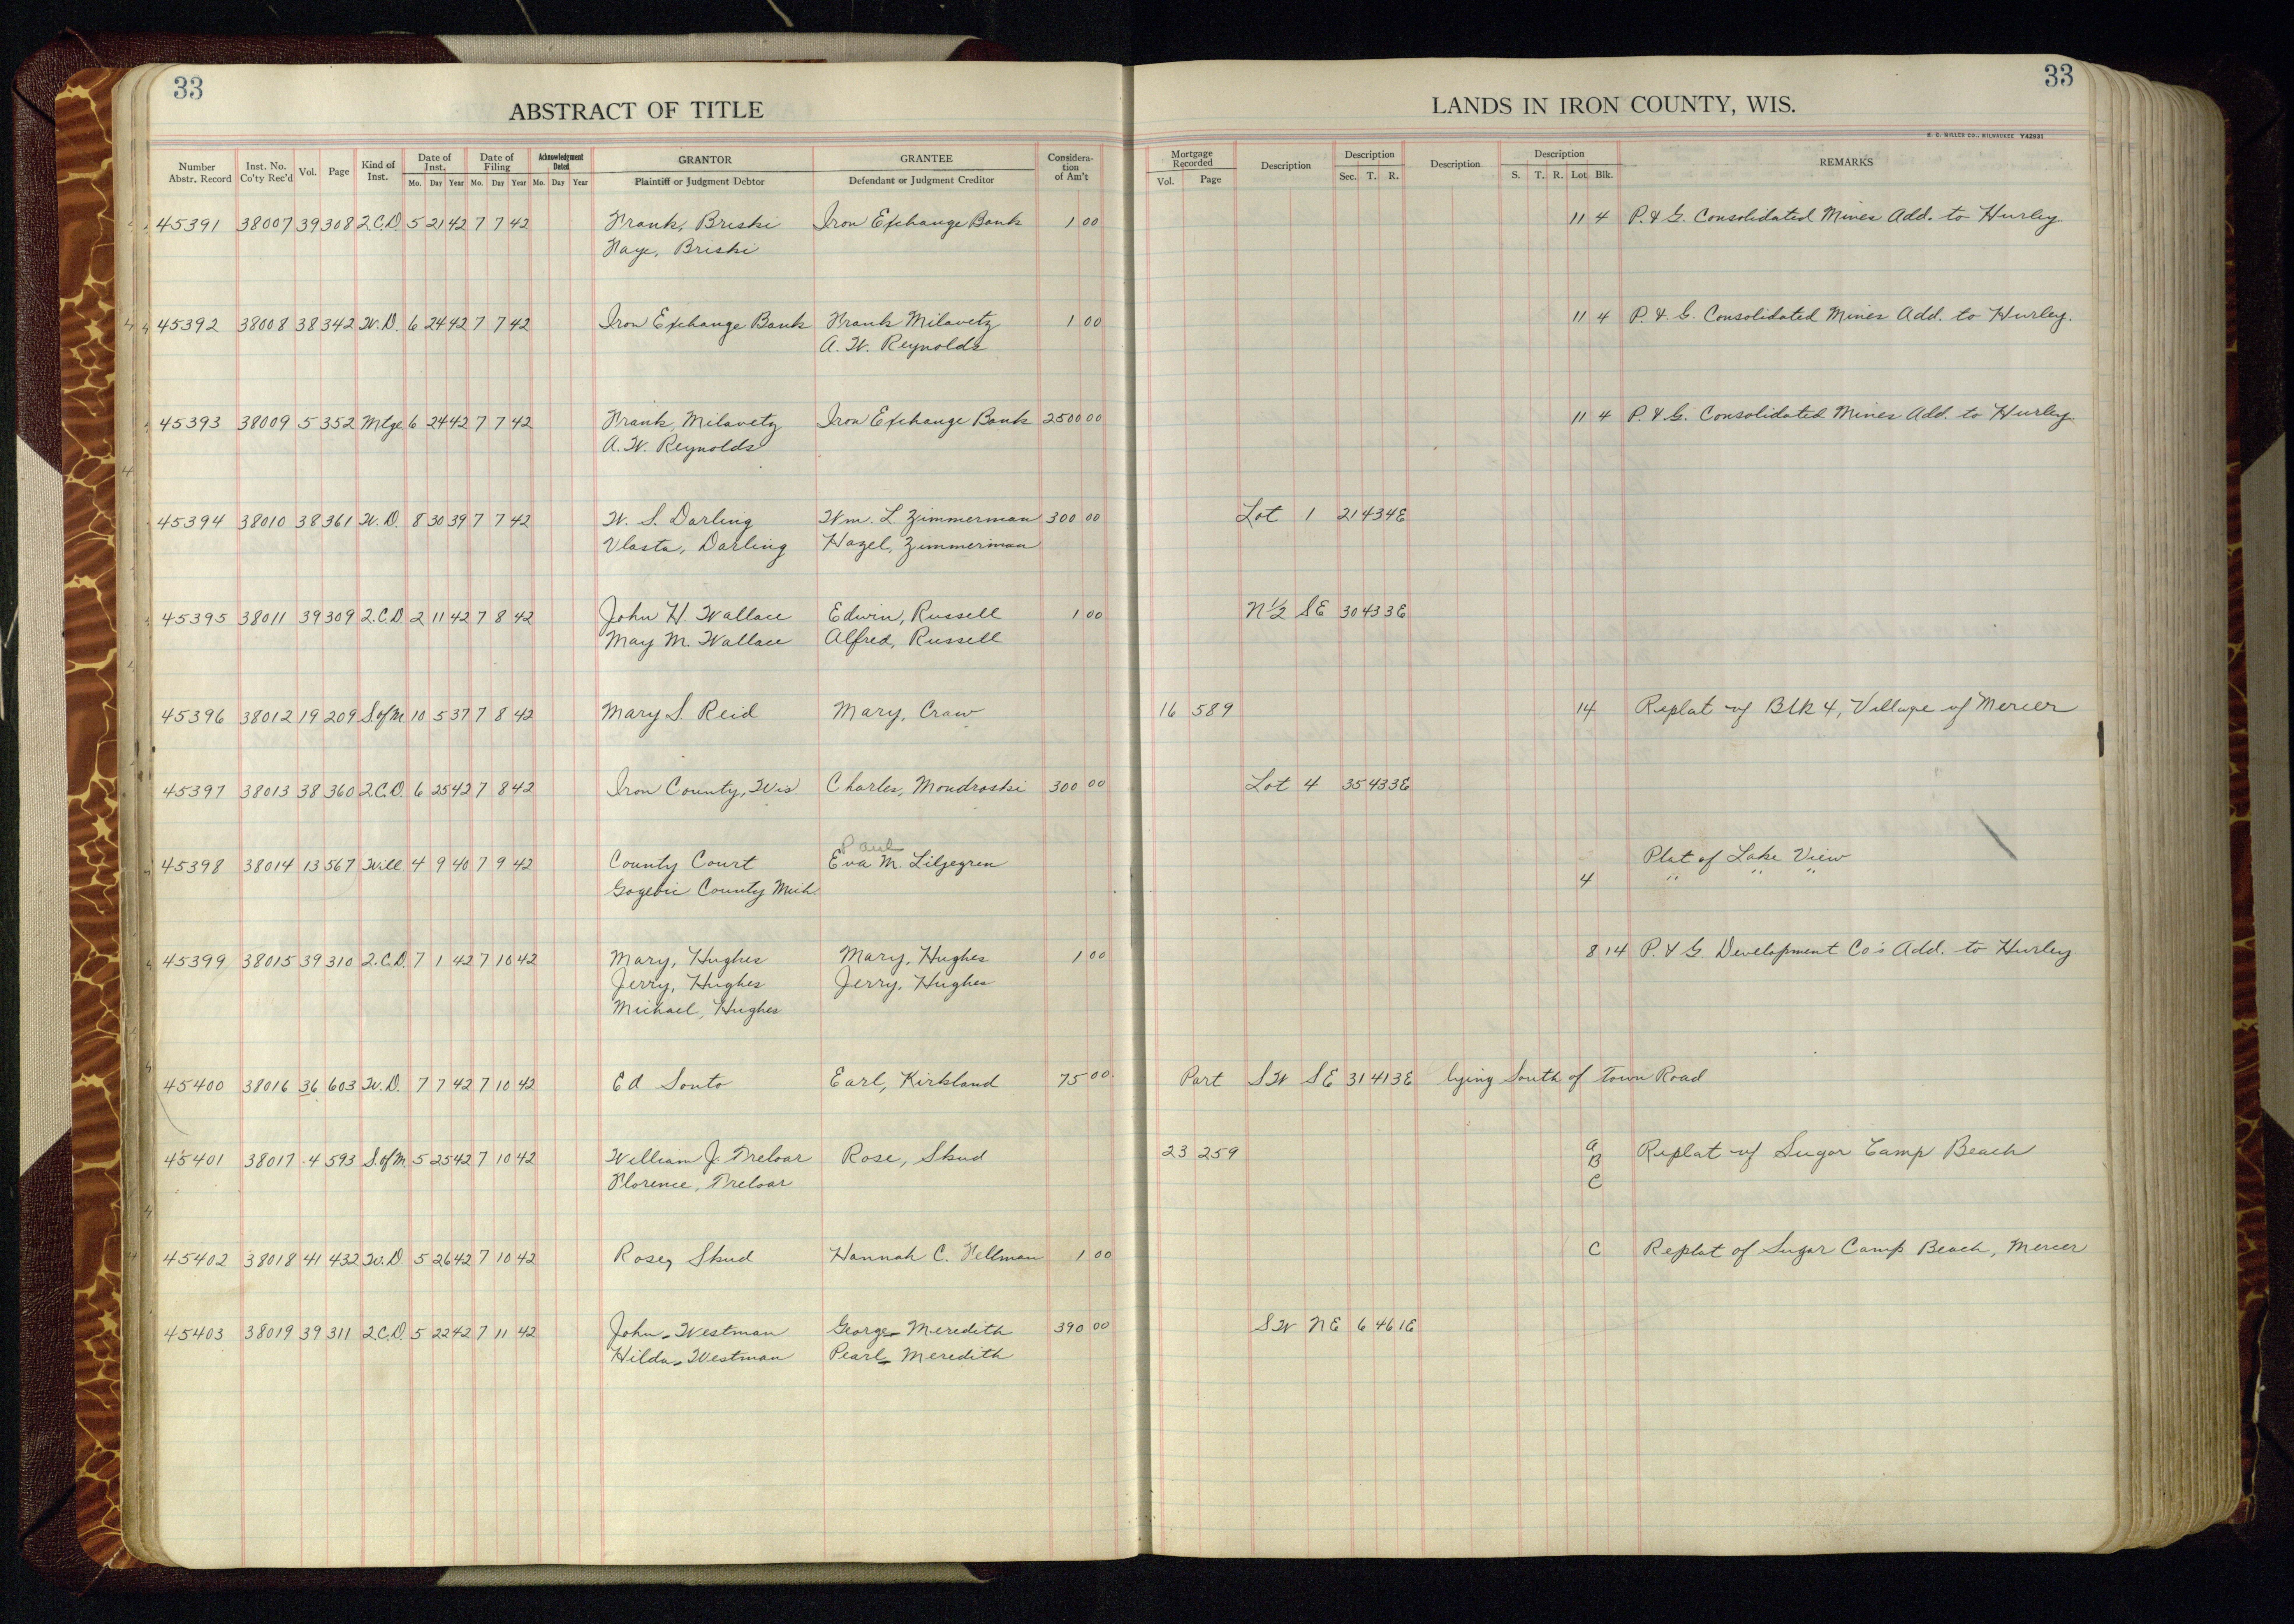 33
33
ABSTRACT OF TITLE
LANDS IN IRON COUNTY, WIS.
H. C. MILLER CO., MILWAUKEE Y42931
Number Abstr. Record Inst. No. Co'ty Rec'd Vol. Page Kind of Inst. Date of Inst. Mo. Day Year Date of Filing Mo. Day Year Acknowledgment Dated Mo. Day Year GRANTOR Plaintiff or Judgment Debtor GRANTEE Defendant or Judgment Creditor Considera-tion of Am't Mortgage Recorded Vol. Page Description Description Sec. T. R. Description Description S. T. R. Lot Blk. REMARKS
45391 38007 39 308 2.C.D. 5 21 42 7 7 42 Frank, Briski Iron Exchange Bank 1 00 11 4 P. & G. Consolidated Mines Add. to Hurley.
Faye, Briski
45392 38008 38 342 W.D. 6 24 42 7 7 42 Iron Exchange Bank Frank Milavetz 1 00 11 4 P. & G. Consolidated Mines Add. to Hurley.
A. W. Reynolds
45393 38009 5 352 Mtge 6 24 42 7 7 42 Frank, Milavetz Iron Exchange Bank 2500 00 11 4 P. & G. Consolidated Mines Add. to Hurley.
A. W. Reynolds
45394 38010 38 361 W.D. 8 30 39 7 7 42 W. S. Darling Wm. L. Zimmerman 300 00 Lot 1 21 43 4E
Vlasta, Darling Hazel, Zimmerman
45395 38011 39 309 2.C.D. 2 11 42 7 8 42 John H. Wallace Edwin, Russell 1 00 N 1/2 SE 30 43 3E
May M. Wallace Alfred, Russell
45396 38012 19 209 S.of M. 10 5 37 7 8 42 Mary S. Reid Mary, Craw 16 589 14 Replat of Blk 4, Village of Mercer
45397 38013 38 360 2.C.D. 6 25 42 7 8 42 Iron County, Wis. Charles, Mondroski 300 00 Lot 4 35 43 3E
Paul
45398 38014 13 567 Will 4 9 40 7 9 42 County Court Eva M. Liljegren Plat of Lake View
Gogebic County Mich. 4 " " "
45399 38015 39 310 2.C.D. 7 1 42 7 10 42 Mary, Hughes Mary, Hughes 1 00 8 14 P. & G. Development Co's Add. to Hurley
Jerry, Hughes Jerry, Hughes
Michael, Hughes
45400 38016 36 603 W.D. 7 7 42 7 10 42 Ed Sonto Earl, Kirkland 75 00 Part SW SE 31 41 3E lying South of Town Road
45401 38017 4 593 S.of M. 5 25 42 7 10 42 William J. Treloar Rose, Skud 23 259 A Replat of Sugar Camp Beach
B
Florence, Treloar C
45402 38018 41 432 W.D. 5 26 42 7 10 42 Rose, Skud Hannah C. Hellman 1 00 C Replat of Sugar Camp Beach, Mercer
45403 38019 39 311 2.C.D. 5 22 42 7 11 42 John - Westman George - Meredith 390 00 SW NE 6 46 1E
Hilda - Westman Pearl - Meredith